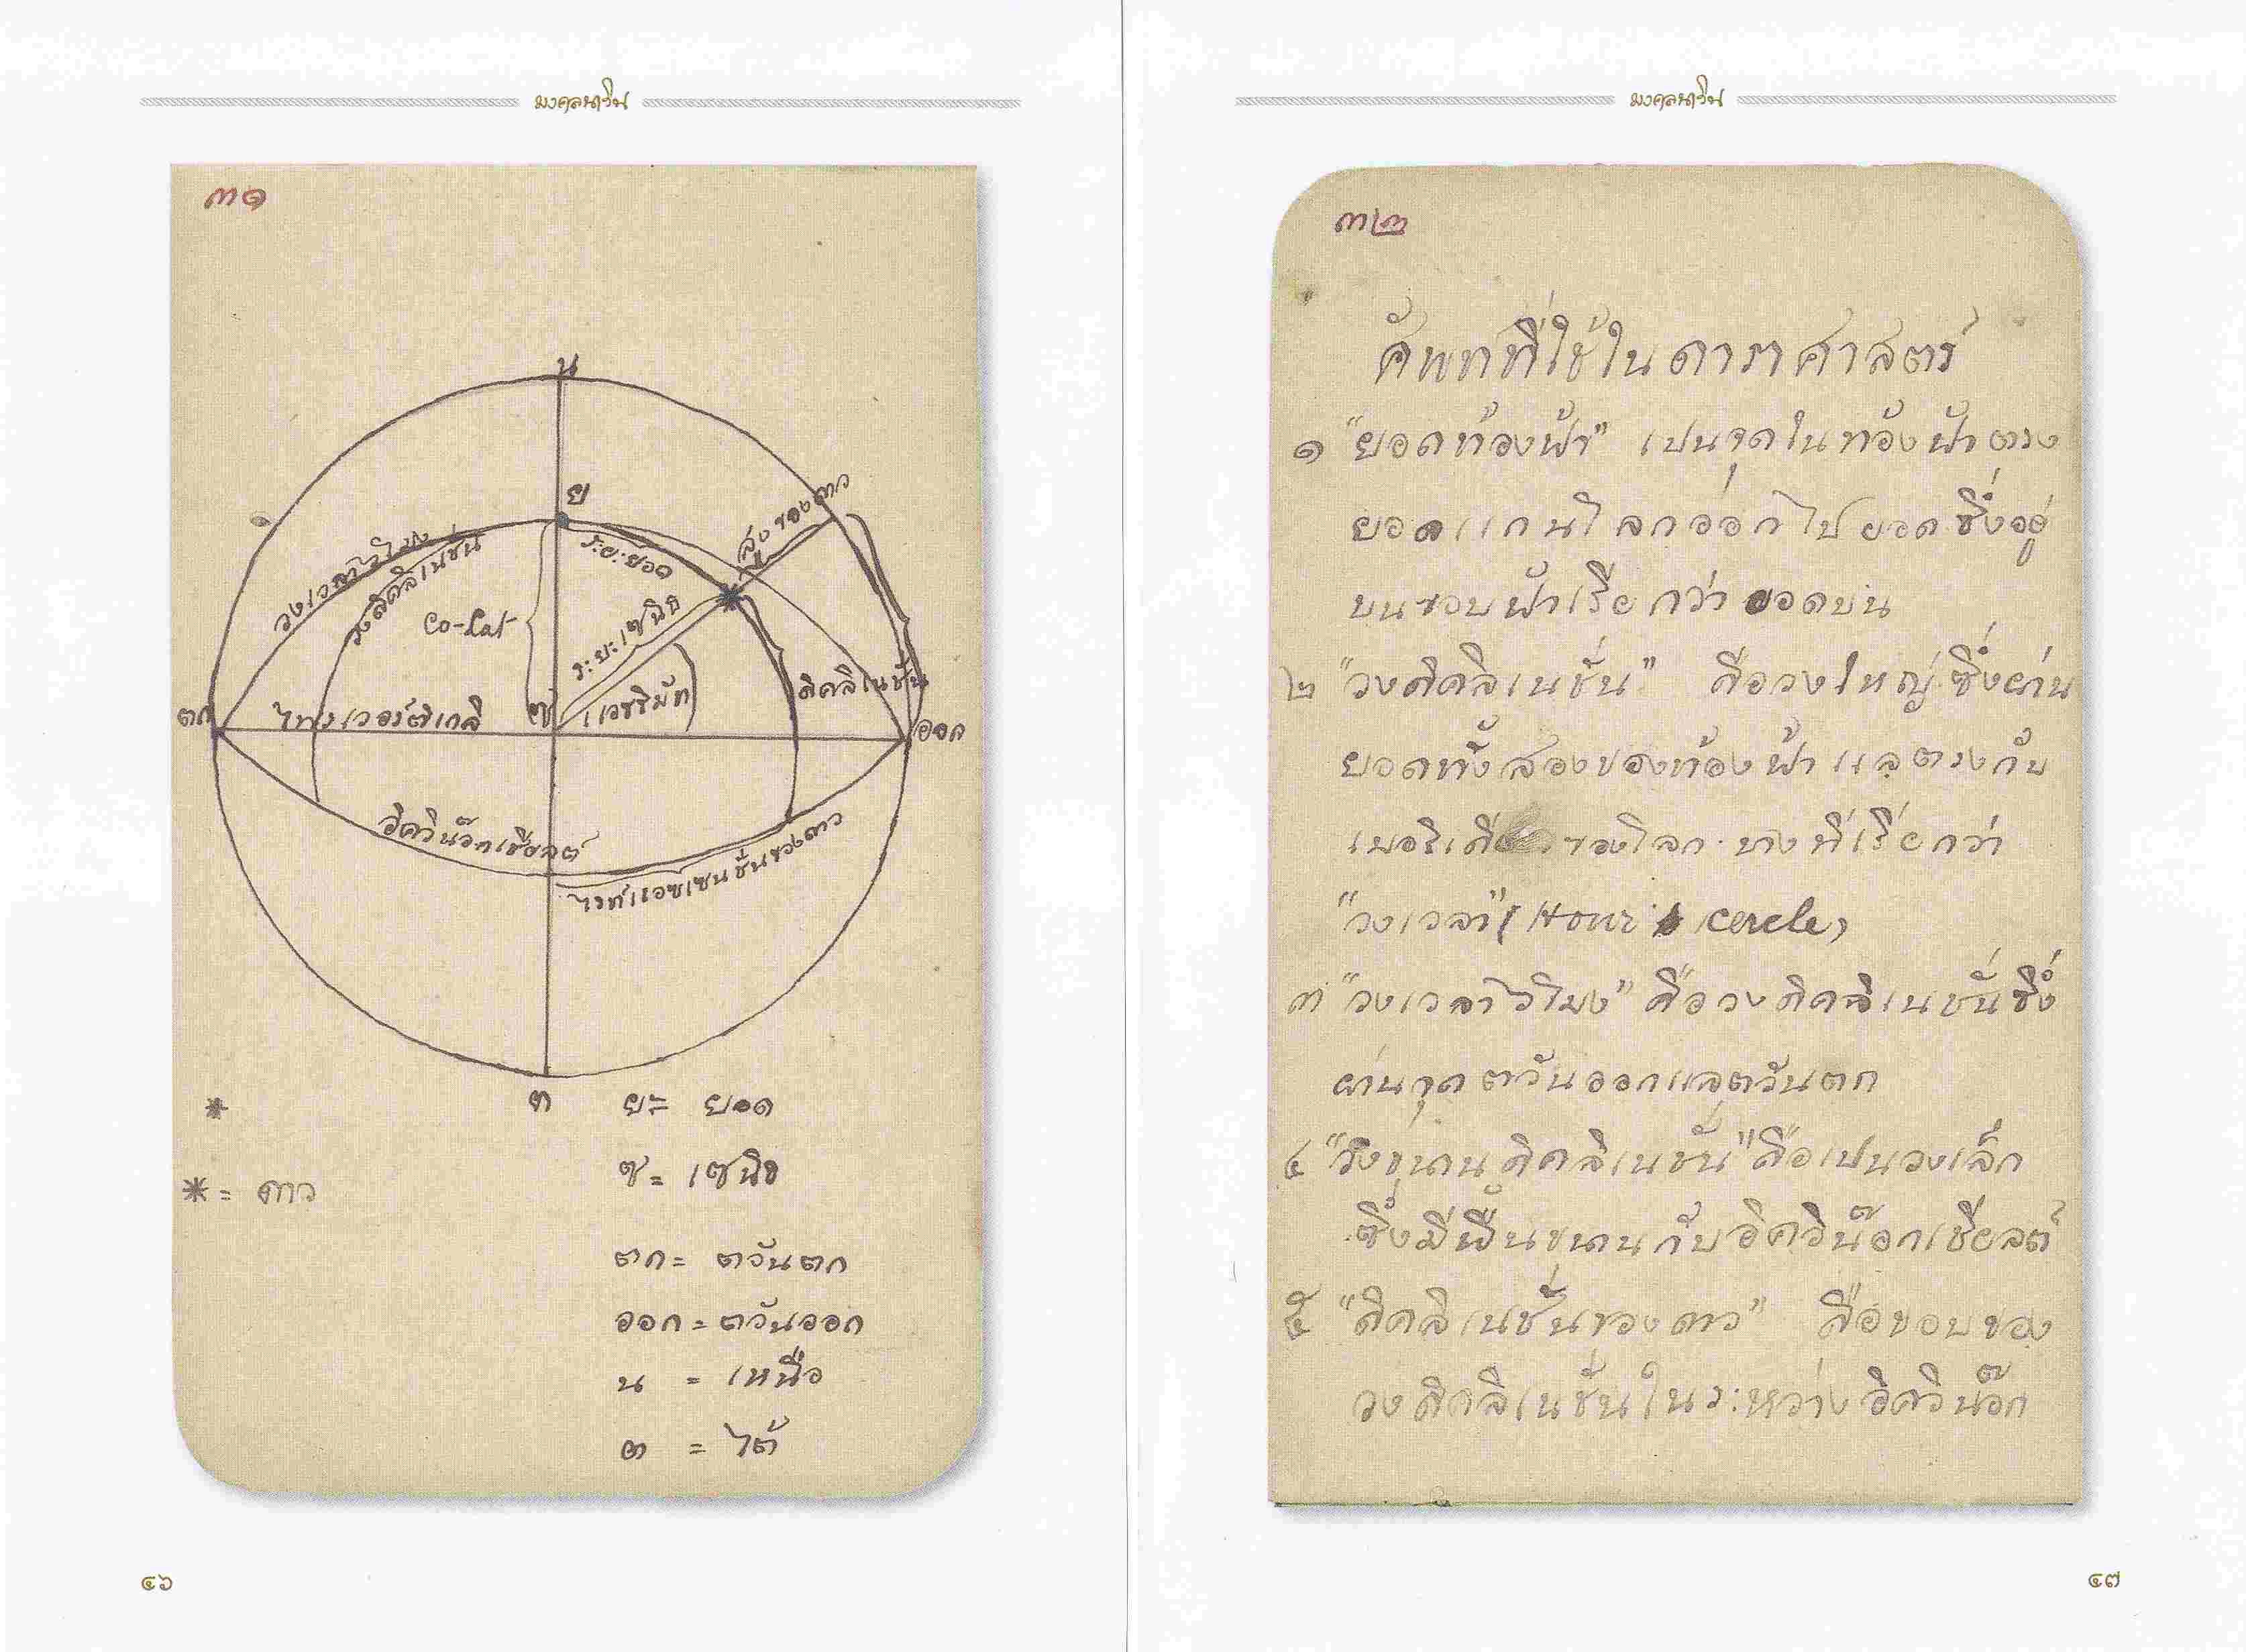 มงคลนาวิน
๓๑
น
ย
สูงของดาว
วงเวลา ๖ โมง
วงดิคลิเนชั่น
ระยะยอด
Co-Lat
ระยะเซนิธ
แอซธิมัท
ดิคลิเนชั่น
ตก
ไพรมเวอร์ติเกล
ซ
ออก
อิควิน๊อกเชียลต์
ไรท์แอซเซนชั่นของดาว
ต
ย = ยอด
ซ = เซนิธ
* = ดาว
ตก = ตวันตก
ออก = ตวันออก
น = เหนือ
ต = ใต้
๔๖
มงคลนาวิน
๓๒
ศัพทที่ใช้ในดาราศาสตร์
๑ "ยอดท้องฟ้า" เปนจุดในท้องฟ้าตรง
ยอดแกนโลกออกไป ยอดซึ่งอยู่
บนขอบฟ้าเรียกว่า ยอดบน
๒ "วงดิคลิเนชั่น" คือวงใหญ่ซึ่งผ่าน
ยอดทั้งสองของท้องฟ้า แลตรงกับ
ของโลก บางทีเรียกว่า
"วงเวลา" (Hour cercle)
๓ "วงเวลา ๖ โมง" คือวงดิคลิเนชั่นซึ่ง
ผ่านจุดตวันออกแลตวันตก
๔ "วงขนานดิคลิเนชั่น" คือเปนวงเล็ก
ซึ่งมีพื้นขนานกับอิควิน๊อกเชียลต์
๕ "ดิคลิเนชั่นของดาว" คือขอบของ
วงดิคลิเนชั่นในระหว่างอิควิน๊อก
๔๗